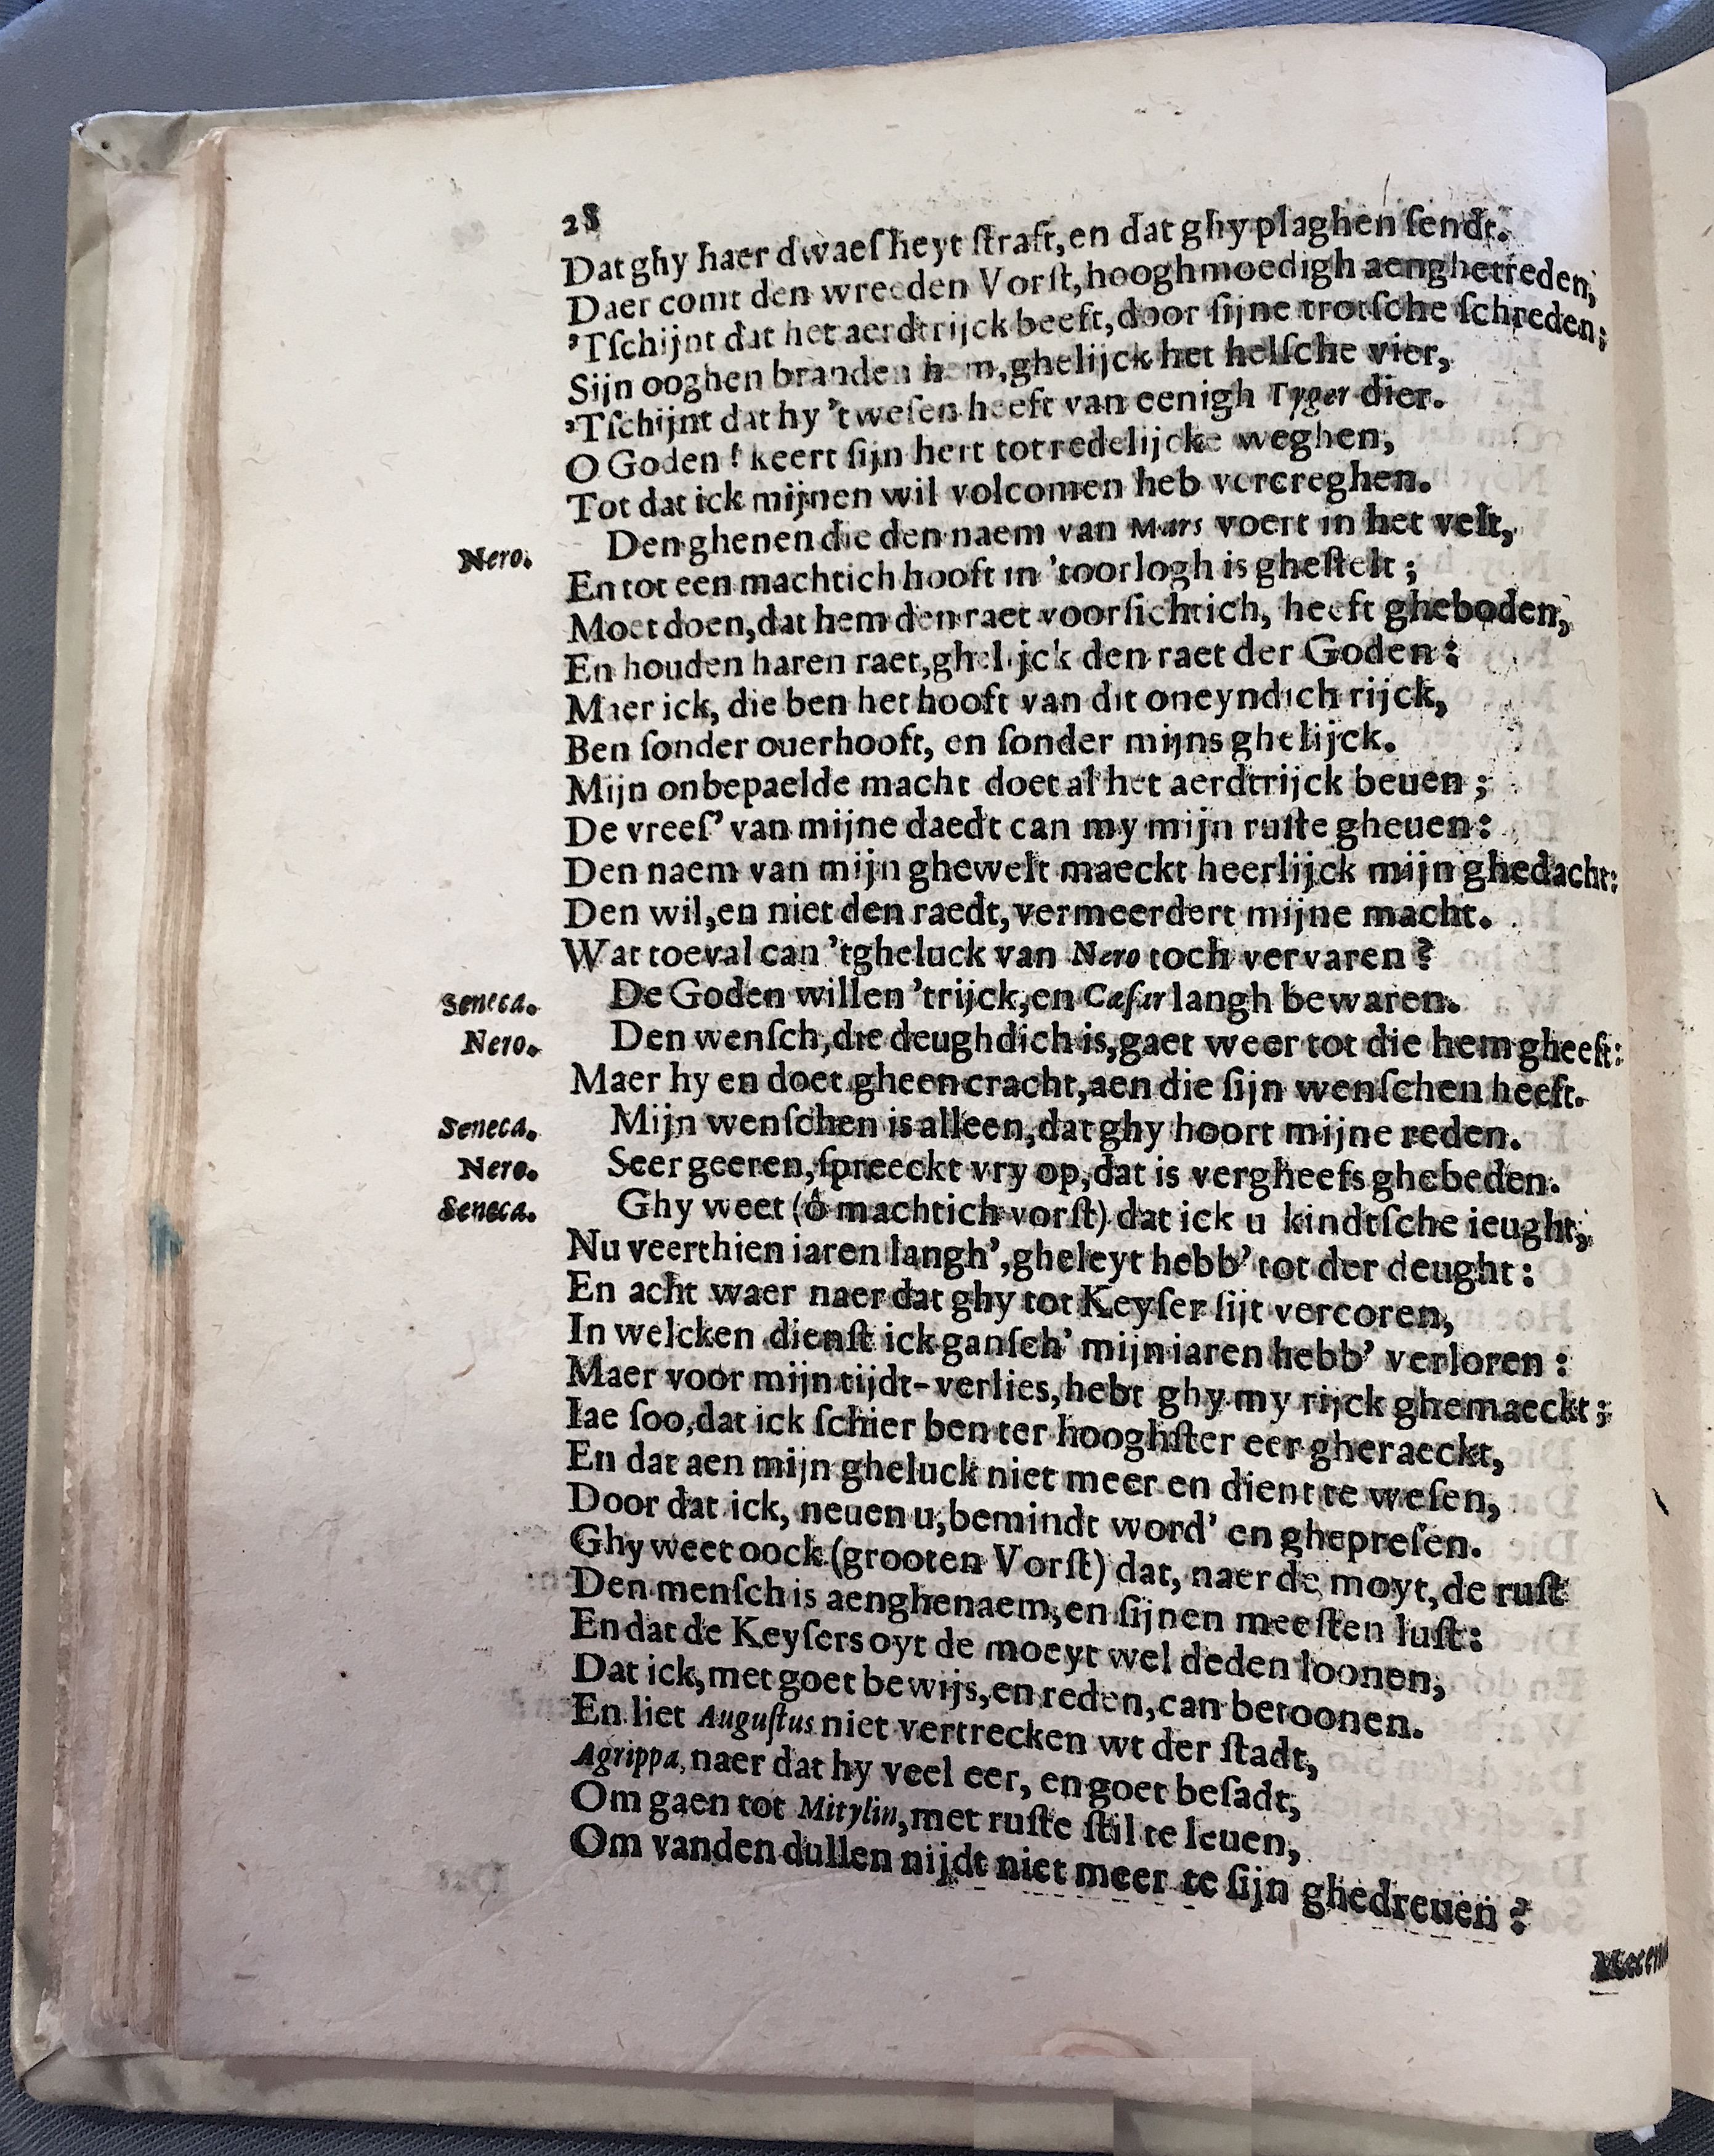 28
Dat ghy haer dwaeſheyt ſtraft, en dat ghy plaghen ſendt.
Daer comt den wreeden Vorſt, hooghmoedigh aenghetreden,
'Tſchijnt dat het aerdtrijck beeft, door ſijne trotſche ſchreden;
Sijn ooghen branden hem, ghelijck het helſche vier,
'Tſchijnt dat hy 'tweſen heeft van eenigh Tyger dier.
O Goden! keert ſijn hert tot redelijcke weghen,
Tot dat ick mijnen wil volcomen heb vercreghen.
Nero. Den ghenen die den naem van Mars voert in het velt,
En tot een machtich hooft in 'toorlogh is gheſtelt;
Moet doen, dat hem den raet voorſichtich, heeft gheboden,
En houden haren raet, ghelijck den raet der Goden:
Maer ick, die ben het hooft van dit oneyndich rijck,
Ben ſonder ouerhooft, en ſonder mijns ghelijck.
Mijn onbepaelde macht doet al het aerdtrijck beuen;
De vreeſ' van mijne daedt can my mijn ruſte gheuen:
Den naem van mijn ghewelt maeckt heerlijck mijn ghedacht:
Den wil, en niet den raedt, vermeerdert mijne macht.
Wat toeval can 'tgheluck van Nero toch vervaren?
Seneca. De Goden willen 'trijck, en Cæſar langh bewaren.
Nero. Den wenſch, die deughdich is, gaet weer tot die hem gheeft:
Maer hy en doet gheen cracht, aen die ſijn wenſchen heeft.
Seneca. Mijn wenſchen is alleen, dat ghy hoort mijne reden.
Nero. Seer geeren, ſpreeckt vry op, dat is vergheefs ghebeden.
Seneca. Ghy weet (ô machtich vorſt) dat ick u kindtſche ieught,
Nu veerthien iaren langh', gheleyt hebb' tot der deught:
En acht waer naer dat ghy tot Keyſer ſijt vercoren,
In welcken dienſt ick ganſch' mijn iaren hebb' verloren:
Maer voor mijn tijdt-verlies, hebt ghy my rijck ghemaeckt;
Iae ſoo, dat ick ſchier ben ter hooghſter eer gheraeckt,
En dat aen mijn gheluck niet meer en dient te weſen,
Door dat ick, neuen u, bemindt word' en ghepreſen.
Ghy weet oock (grooten Vorſt) dat, naer de moyt, de ruſt
Den menſch is aenghenaem, en ſijnen meeſten luſt:
En dat de Keyſers oyt de moeyt wel deden loonen,
Dat ick, met goet bewijs, en reden, can betoonen.
En liet Auguſtus niet vertrecken wt der ſtadt,
Agrippa, naer dat hy veel eer, en goet beſadt,
Om gaen tot Mitylin, met ruſte ſtil te leuen,
Om vanden dullen nijdt niet meer te ſijn ghedreuen?